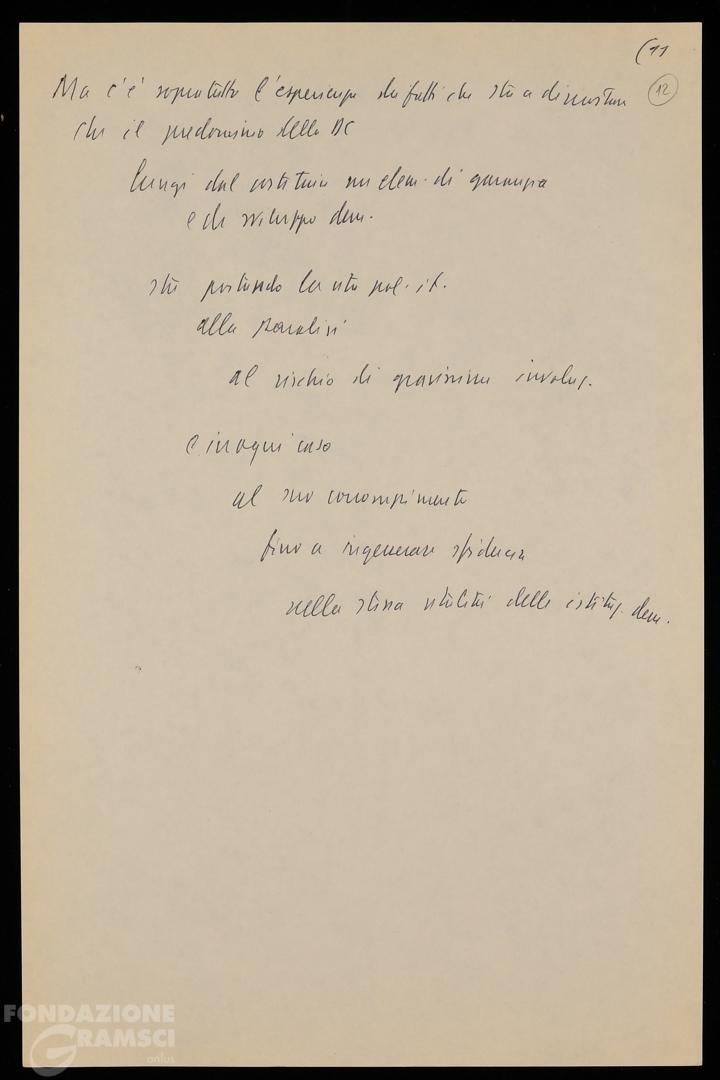 (11
12
Ma c'è sopratutto l'esperienza dei fatti che sta a dimostrare
che il predominio della DC
lungi dal costituire un elem. di garanzia
e di sviluppo dem.
sta portando la vita pol. it.
alla paralisi
al rischio di gravissime involuz.
e in ogni caso
al suo corrompimento
fino a ingenerare sfiducia
nella stessa utilità delle istituz. dem.
FONDAZIONE
GRAMSCI
onlus